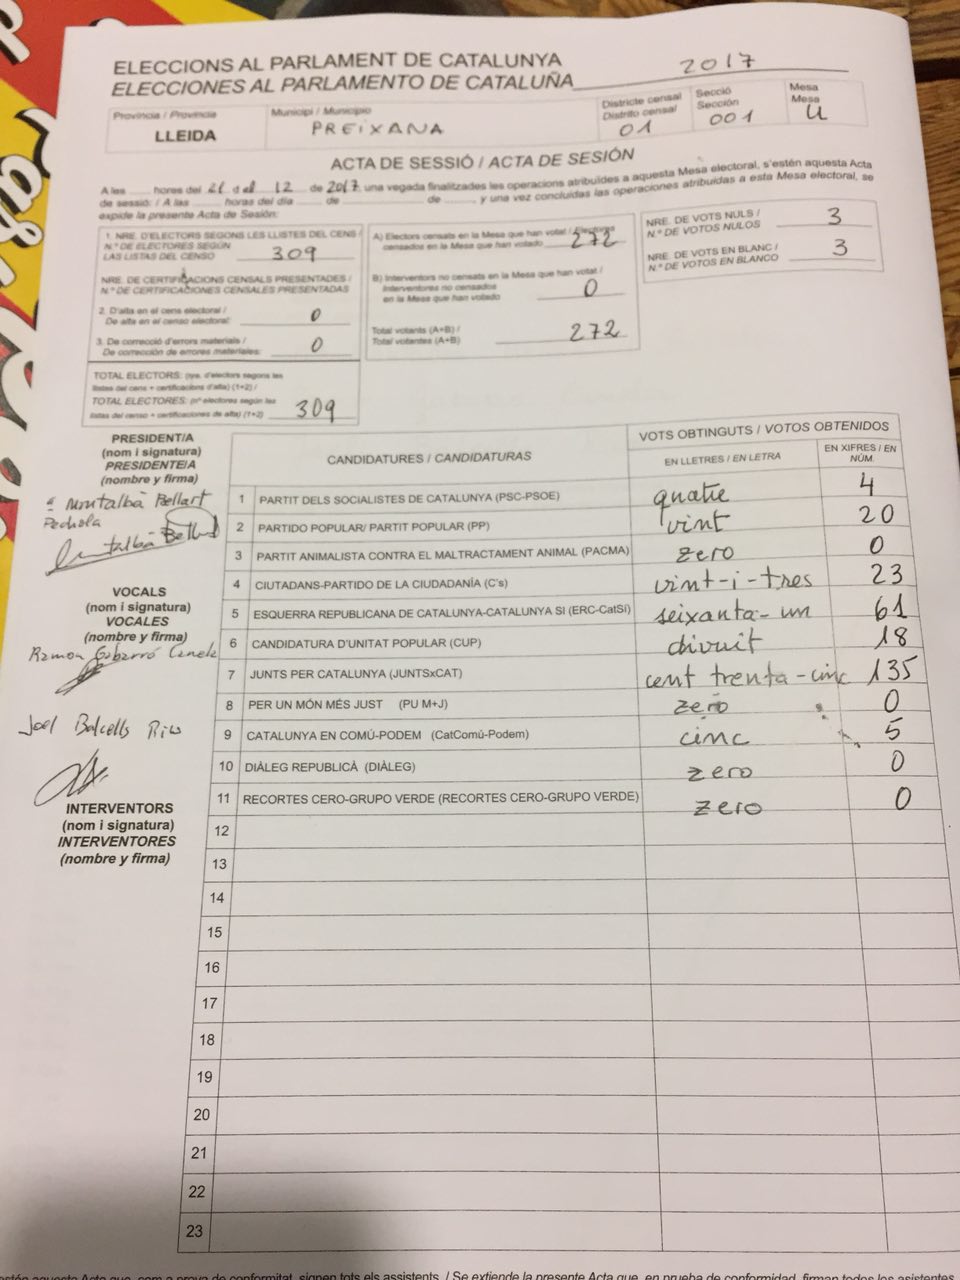 ELECCIONS AL PARLAMENT DE CATALUNYA
ELECCIONES AL PARLAMENTO DE CATALUÑA 2017
Provincia / Provincia
LLEIDA
Municipi / Municipio
PREIXANA
Districte censal
Distrito censal
01
Secció
Sección
001
Mesa
Mesa
U
ACTA DE SESSIÓ / ACTA DE SESIÓN
A les ...... hores del 21 d el 12 de 2017 una vegada finalitzades les operacions atribuïdes a aquesta Mesa electoral, s'estén aquesta Acta
de sessió: / A las ...... horas del día ...... de ...... de ......, y una vez concluidas las operaciones atribuidas a esta Mesa electoral, se
expide la presente Acta de Sesión:
1. NRE. D'ELECTORS SEGONS LES LLISTES DEL CENS /
N.º DE ELECTORES SEGÚN
LAS LISTAS DEL CENSO 309
NRE. DE CERTIFICACIONS CENSALS PRESENTADES /
N.º DE CERTIFICACIONES CENSALES PRESENTADAS
2. D'alta en el cens electoral /
De alta en el censo electoral: 0
3. De correcció d'errors materials /
De corrección de errores materiales: 0
TOTAL ELECTORS: (nre. d'electors segons les
llistes del cens + certificacions d'alta) (1+2) /
TOTAL ELECTORES: (nº electores según las
listas del censo + certificaciones de alta) (1+2) 309
A) Electors censats en la Mesa que han votat / Electores
censados en la Mesa que han votado 272
B) Interventors no censats en la Mesa que han votat /
Interventores no censados
en la Mesa que han votado 0
Total votants (A+B) /
Total votantes (A+B) 272
NRE. DE VOTS NULS /
N.º DE VOTOS NULOS 3
NRE. DE VOTS EN BLANC /
N.º DE VOTOS EN BLANCO 3
PRESIDENT/A
(nom i signatura)
PRESIDENTE/A
(nombre y firma)
Montalbà Bellart
VOCALS
(nom i signatura)
VOCALES
(nombre y firma)
Ramon Gabarró
Joel Balcells
INTERVENTORS
(nom i signatura)
INTERVENTORES
(nombre y firma)
CANDIDATURES / CANDIDATURAS
VOTS OBTINGUTS / VOTOS OBTENIDOS
EN LLETRES / EN LETRA
EN XIFRES / EN
NÚM.
1 PARTIT DELS SOCIALISTES DE CATALUNYA (PSC-PSOE) quatre 4
2 PARTIDO POPULAR/ PARTIT POPULAR (PP) vint 20
3 PARTIT ANIMALISTA CONTRA EL MALTRACTAMENT ANIMAL (PACMA) zero 0
4 CIUTADANS-PARTIDO DE LA CIUDADANÍA (C's) vint-i-tres 23
5 ESQUERRA REPUBLICANA DE CATALUNYA-CATALUNYA SÍ (ERC-CatSí) seixanta-un 61
6 CANDIDATURA D'UNITAT POPULAR (CUP) divuit 18
7 JUNTS PER CATALUNYA (JUNTSxCAT) cent trenta-cinc 135
8 PER UN MÓN MÉS JUST (PU M+J) zero 0
9 CATALUNYA EN COMÚ-PODEM (CatComú-Podem) cinc 5
10 DIÀLEG REPUBLICÀ (DIÀLEG) zero 0
11 RECORTES CERO-GRUPO VERDE (RECORTES CERO-GRUPO VERDE) zero 0
12
13
14
15
16
17
18
19
20
21
22
23
aquesta Acta que, com a prova de conformitat, signen tots els assistents. / Se extiende la presente Acta que, en prueba de conformidad, firman todos los asistentes